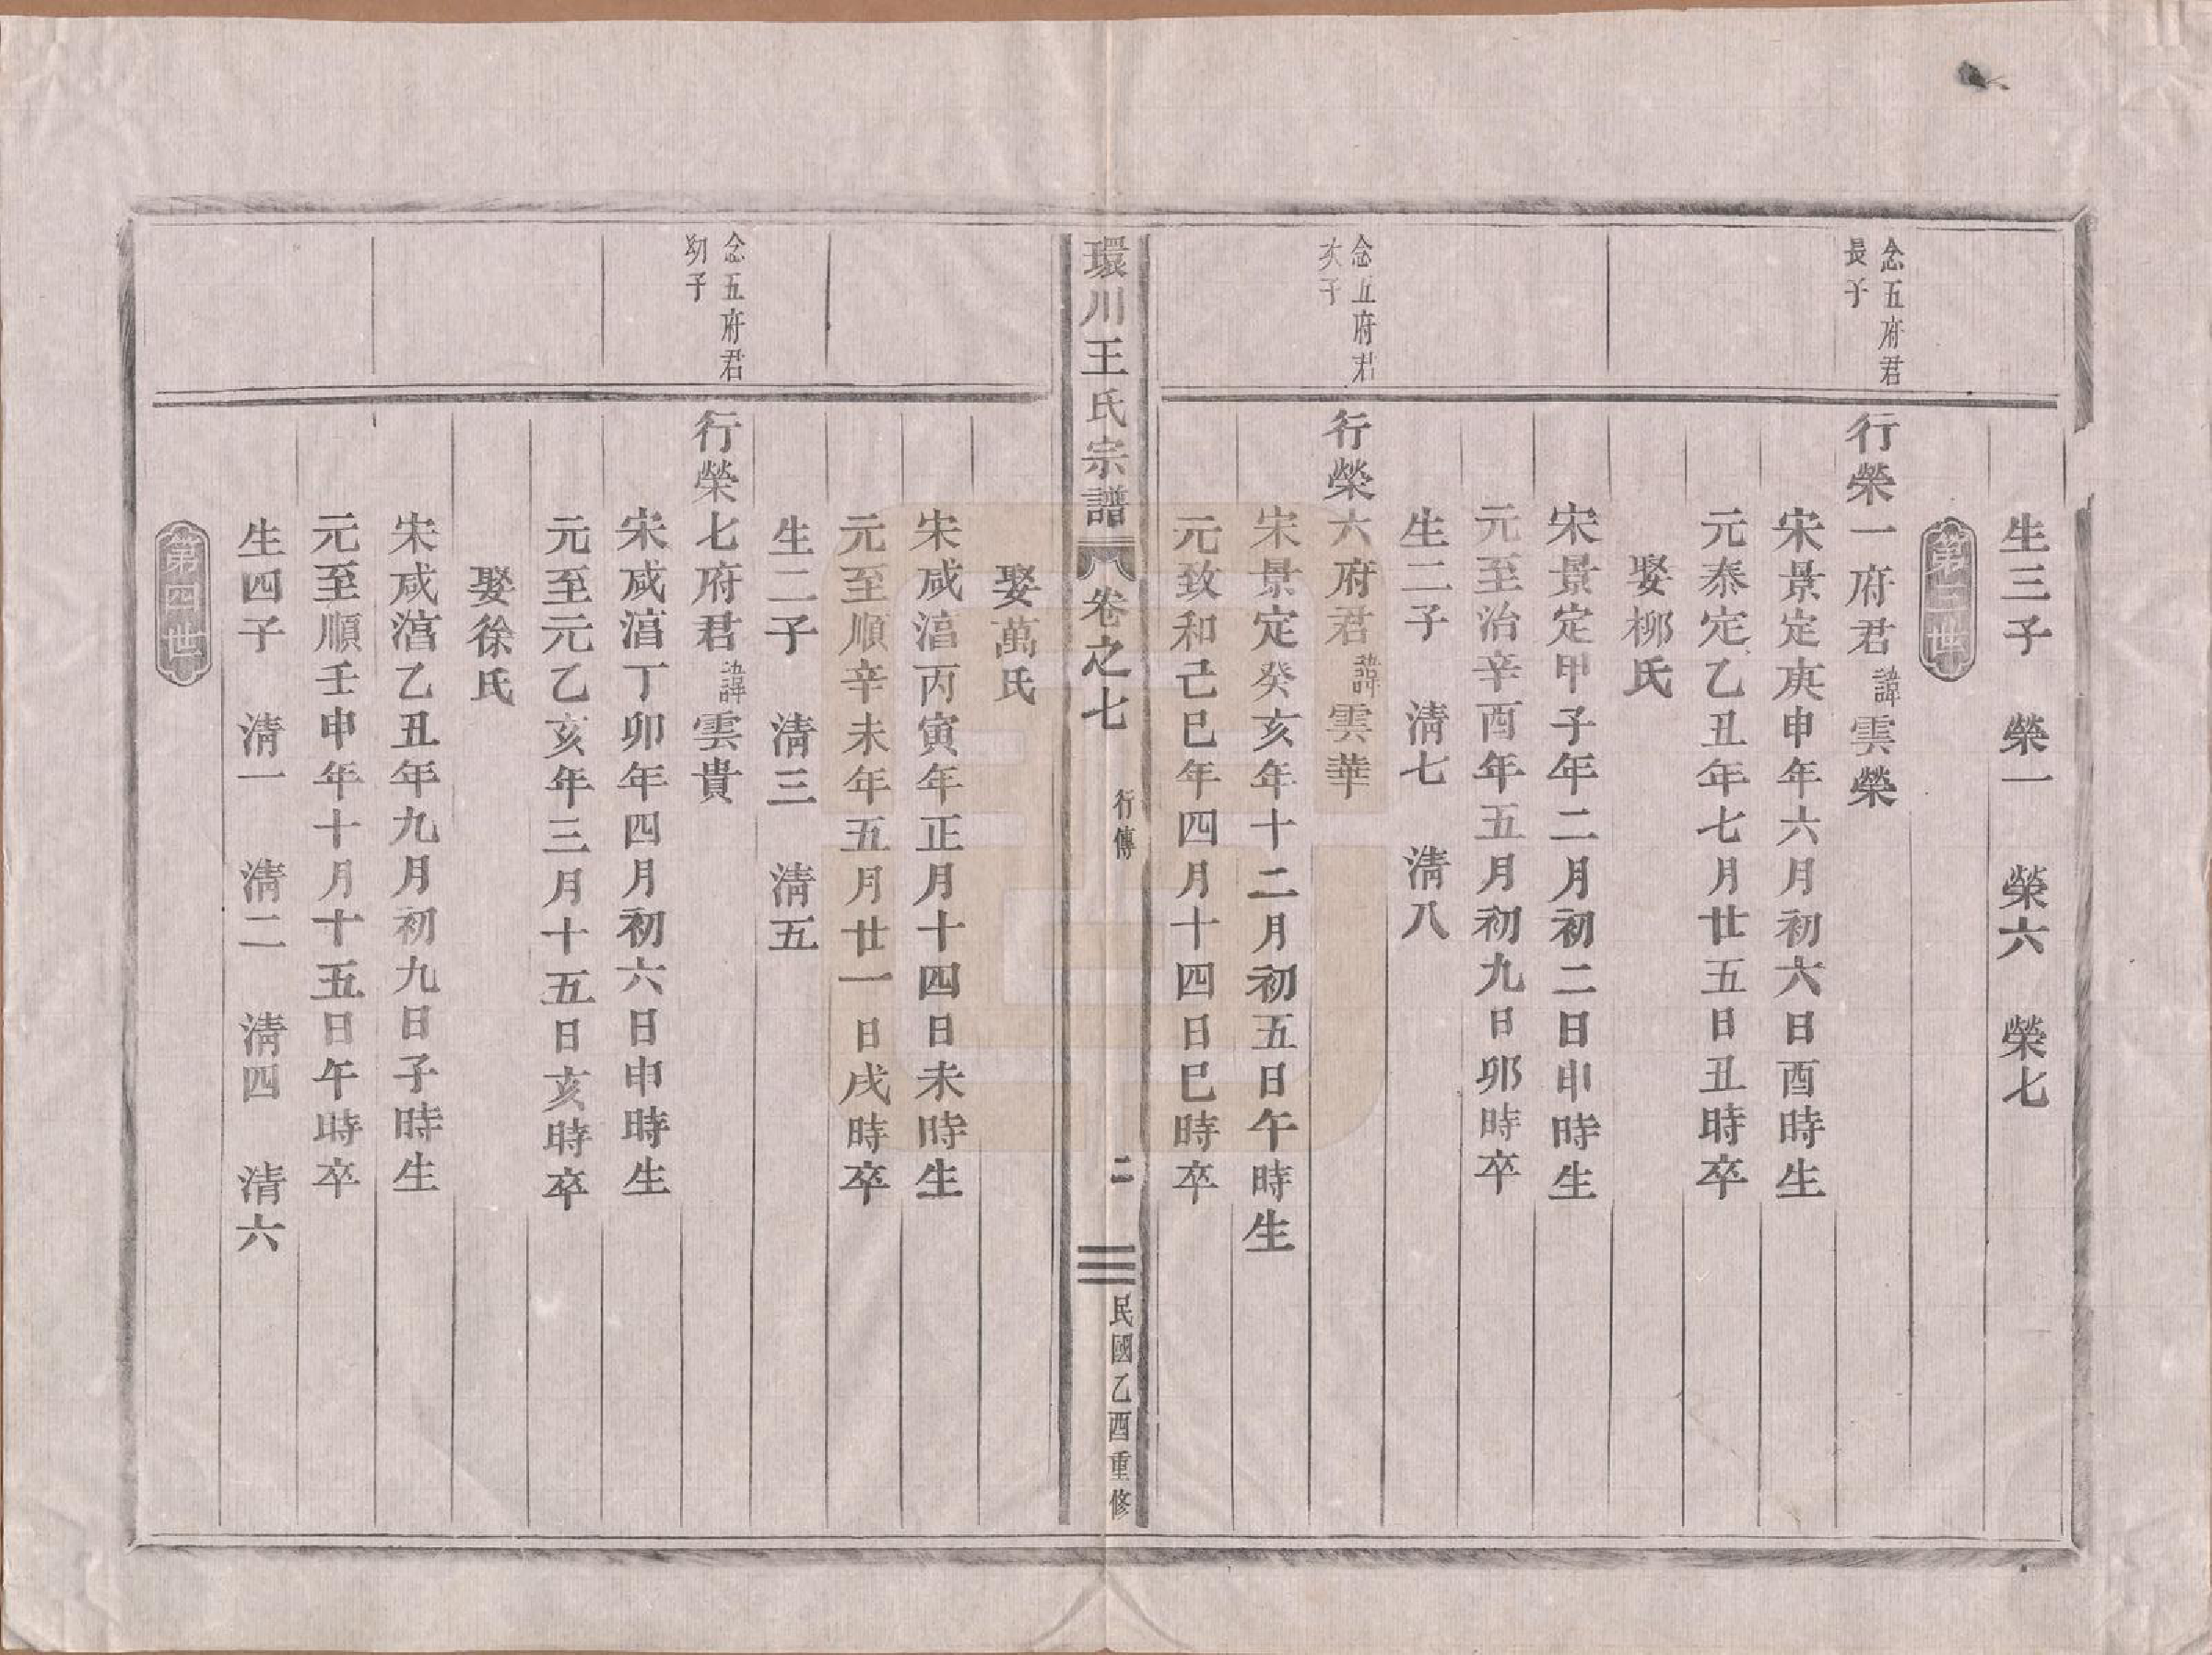 生三子　榮一　榮六　榮七
第三世
念五府君
長子
行榮一府君諱雲榮
宋景定庚申年六月初六日酉時生
元泰定乙丑年七月廿五日丑時卒
娶柳氏
宋景定甲子年二月初二日申時生
元至治辛酉年五月初九日卯時卒
生二子　淸七　淸八
念五府君
次子
行榮六府君諱雲華
宋景定癸亥年十二月初五日午時生
元致和己巳年四月十四日巳時卒
環川王氏宗譜　卷之七　行傳　二　民國乙酉重修
娶萬氏
宋咸湻丙寅年正月十四日未時生
元至順辛未年五月廿一日戌時卒
生二子　淸三　淸五
念五府君
幼子
行榮七府君諱雲貴
宋咸湻丁卯年四月初六日申時生
元至元乙亥年三月十五日亥時卒
娶徐氏
宋咸湻乙丑年九月初九日子時生
元至順壬申年十月十五日午時卒
生四子　淸一　淸二　淸四　淸六
第四世